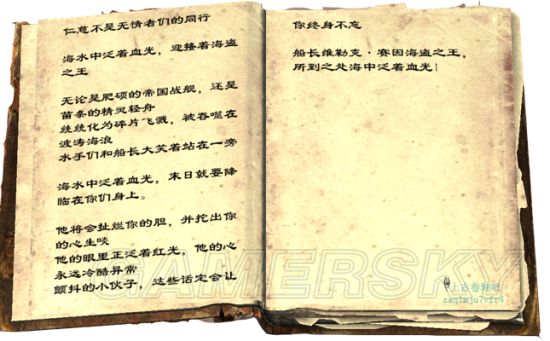 仁慈不是无情者们的同行
海水中泛着血光，迎接着海盗
之王
无论是肥硕的帝国战舰，还是
苗条的精灵轻舟
统统化为碎片飞溅，被吞噬在
波涛海浪
水手们和船长大笑着站在一旁
海水中泛着血光，末日就要降
临在你们身上。
他将会扯烂你的胆，并挖出你
的心生啖
他的眼里正泛着红光，他的心
永远冷酷异常
颤抖的小伙子，这些话定会让
你终身不忘
船长维勒克·赛因海盗之王，
所到之处海中泛着血光！
GAMERSKY
上古卷轴吧
zaq1mju7vfr4